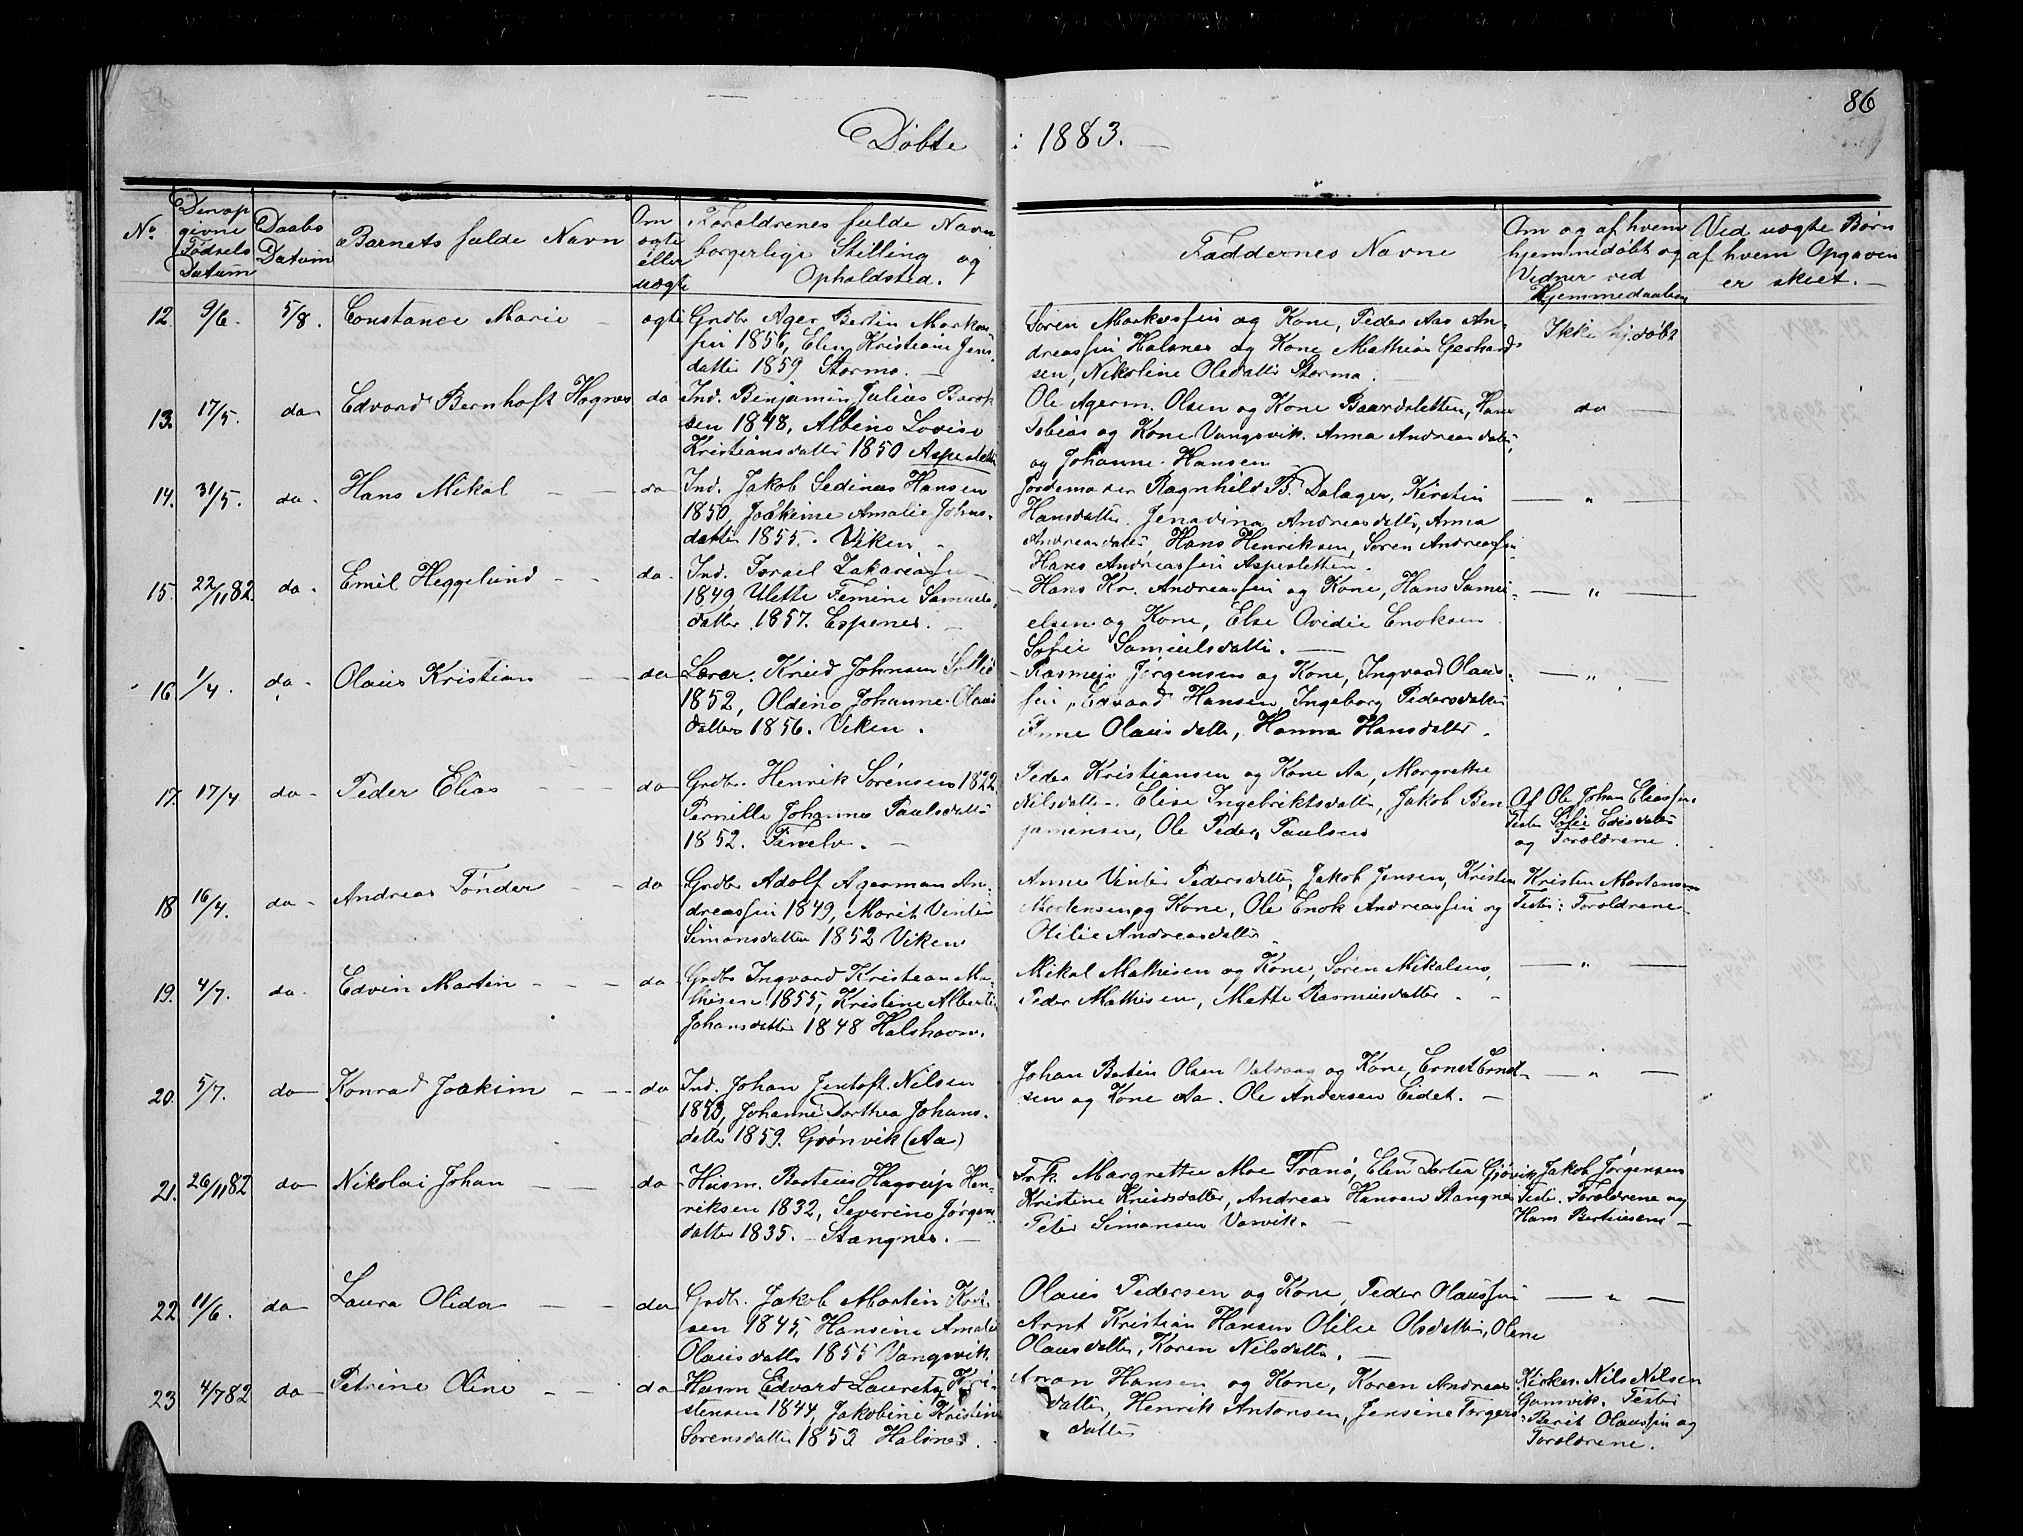 86
Døbte i 1883.
No.
Den op
givne
Fødsels
Datum
Daabs
Datum
Barnets fulde Navn
Om
ægte
eller
uægte
Forældrenes fulde Navn
borgerlige Stilling og
Opholdsted.
Faddernes Navne
Om og af hvem
hjemmedøbt og
Vidner ved
Hjemmedaaben
Ved uægte Børn
af hvem Opgaven
er skeet.
12. 9/6. 5/8. Constance Marie ægte Grdbr Ager Bertin Markus
sen 1856, Elen Kristiane Jens
datter 1859 Stormo.
Søren Markussen og Kone, Peder Aas An-
dreassen Halsnes og Kone Mathias Gerhard
sen, Nikoline Olsdatter Stormo.
Ikke hj.døbt
13. 17/5. do Edvard Bernhoft Hagnes do Ind. Benjamin Julius
sen 1848, Albine Lovise
Kristiansdatter 1850
Ole Agerm. Olsen og Kone Baardsletten, Hans
Tobias og Kone Vangsvik. Anna Andreasdatter
og Johanne Hansen
do
14. 31/5. do Hans Mikal do Ind. Jakob Sedinius Hansen
1850, Joakime Amalie Johns-
datter 1855. Viken
Jordemoder Ragnhild B. Dalager, Kirstin
Hansdatter. Jenadina Andreasdatter, Anna
Andreasdatter, Hans Henriksen, Søren Andreassen
Hans Andreassen Aspesletten.
"
15. 22/11 82. do Emil Heggelund do Ind. Israel Zakariassen
1849, Ulette Femine Samuels
datter 1857. Espenes.
Hans Kr. Andreassen og Kone, Hans Samu-
elsen og Kone, Else Ovidie Enoksen
Sofie Samuelsdatter.
"
16 1/4. do Olaus Kristian do Lærer. Knud Johnsen
1852, Oldine Johanne Olaus
datter 1856. Viken.
Rasmus Jørgensen og Kone, Ingvard Olaus-
sen, Edvard Hansen, Ingeborg Pedersdatter
Anne Olausdatter, Hanna Hansdatter.
"
17. 17/4 do Peder Elias do Grdbr. Henrik Sørensen 1822
Pernille Johanna Paulsdatter
1852. Finelv.
Peder Kristiansen og Kone Aa, Margrethe
Nilsdatter, Elise Ingebriktsdatter, Jakob Ben
jaminsen, Ole Peder Paulsen
Af Ole Johan Eliassen
Tester Sofie
og Forældrene.
18 16/4. do Andreas Tønder do Grdbr Adolf Agerman An-
dreassen 1849, Marit Vinter
Simonsdatter 1852 Viken
Anne Vinter Pedersdatter, Jakob Jensen, Kristen
Mortensen og Kone, Ole Enok Andreassen og
Otilie Andreasdatter
Kristen Mortensen
Tester: Forældrene
19. 4/7. do Edvin Martin do Grdbr Ingvard Kristean Ma-
thisen 1855, Kristine Alberte
Johansdatter 1848 Halshavn.
Mikal Mathisen og Kone, Søren Mikalsen,
Peder Mathisen, Mette Rasmusdatter.
"
20. 5/7. do Konrad Joakim do Ind. Johan Jentoft Nilsen
1853, Johanne Dorthea Johans-
datter 1859. Grønvik (Aa)
Johan Bertin Olsen Valvaag og Kone, Ernst Ernst-
sen og Kone Aa. Ole Andersen Eidet.
"
21. 26/11 82 do Nikolai Johan do Husm. Berteus Hagerup Hen-
riksen 1832, Severine Jørgens
datter 1835. Stangnes.
Frk. Margrethe Moe Tranø, Elen Dortea Gjøvik
Kristine Knudsdatter, Andreas Hansen Stangnes
Peter Simonsen Vasvik.
Jakob Jørgensen
Test. Forældrene og
Hans Berthiesen
22 11/6. do Laura Olida do Grdbr. Jakob Martin
sen 1845, Hansine Amalie
Olausdatter 1855 Vangsvik.
Olaus Pedersen og Kone, Peder Olaussen
Arnt Kristian Hansen Otilie Olsdatter, Oline
Olausdatter, Karen Nilsdatter.
"
23 4/7 82 do Petrine Oline do Husm Edvard Lauretz Kri-
stensen 1844, Jakobine Kristine
Sørensdatter 1853 Halsnes.
Aron Hansen og Kone, Karen Andreas
datter, Henrik Antonsen, Jensine Torgers
datter
Kirkes. Nils Nilsen
Gamvik. Tester
Berit Olaussen og
Forældrene.